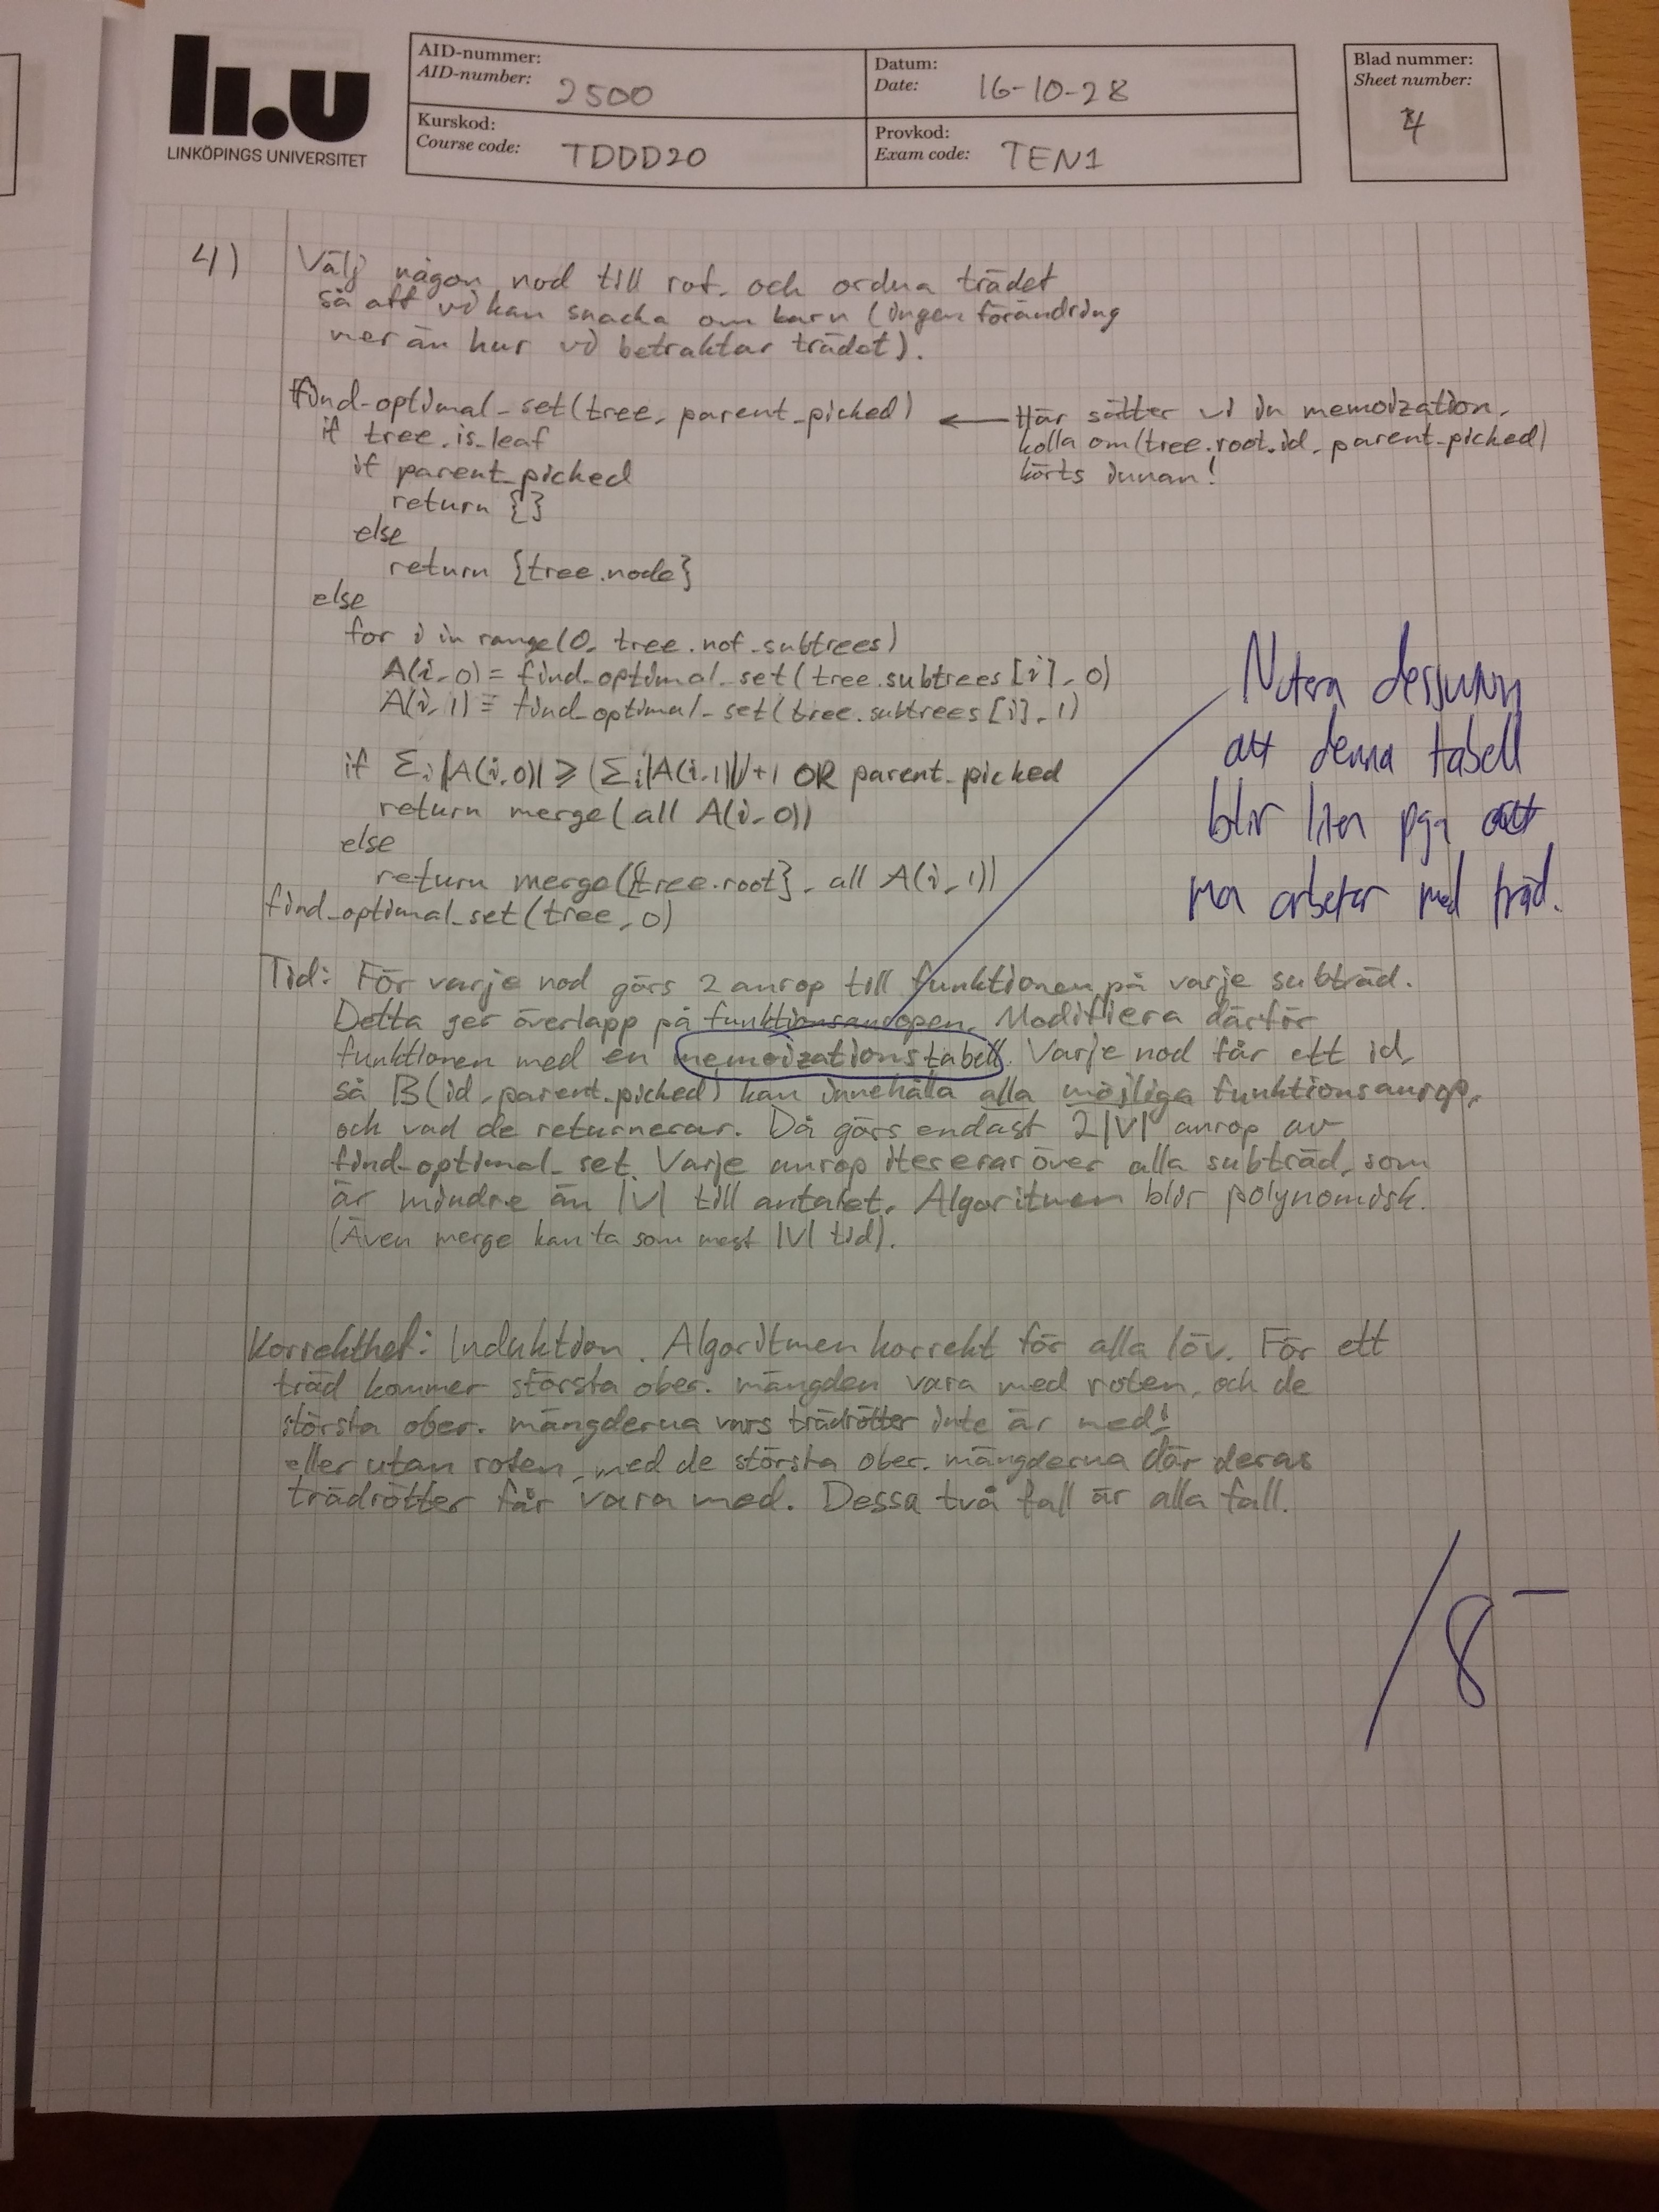 li.u
LINKÖPINGS UNIVERSITET
AID-nummer:
AID-number: 2500
Datum:
Date: 16-10-28
Kurskod:
Course code: TDDD20
Provkod:
Exam code: TEN1
Blad nummer:
Sheet number:
4
4) Välj någon nod till rot, och ordna trädet
så att vi kan snacka om barn (ingen förändring
mer än hur vi betraktar trädet).
find_optimal_set(tree, parent_picked) ← Här sätter vi in memoization,
if tree.is_leaf kolla om (tree.root.id, parent_picked)
if parent_picked körts innan!
return {}
else
return {tree.node}
else
for i in range(0, tree.nof_subtrees)
A(i,0) = find_optimal_set(tree.subtrees[i], 0)
A(i,1) = find_optimal_set(tree.subtrees[i], 1)
if Σi|A(i,0)| ≥ (Σi|A(i,1)|)+1 OR parent_picked
return merge(all A(i,0))
else
return merge({tree.root}, all A(i,1))
find_optimal_set(tree, 0)
Notera dessutom
att denna tabell
blir liten pga att
man arbetar med träd.
Tid: För varje nod görs 2 anrop till funktionen på varje subträd.
Detta ger överlapp på funktionsanropen. Modifiera därför
funktionen med en memoizationstabell. Varje nod får ett id,
så B(id, parent_picked) kan innehålla alla möjliga funktionsanrop,
och vad de returnerar. Då görs endast 2|V| anrop av
find_optimal_set. Varje anrop itererar över alla subträd, som
är mindre än |V| till antalet. Algoritmen blir polynomisk.
(Även merge kan ta som mest |V| tid).
Korrekthet: Induktion. Algoritmen korrekt för alla löv. För ett
träd kommer största ober. mängden vara med roten, och de
största ober. mängderna vars trädrötter inte är med!
eller utan roten, med de största ober. mängderna där deras
trädrötter får vara med. Dessa två fall är alla fall.
/8-